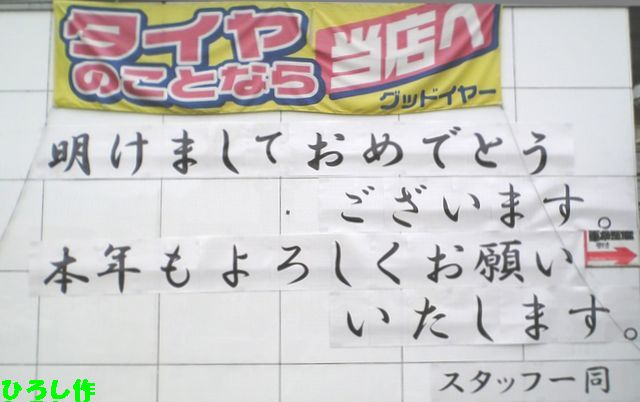 タイヤ
のことなら
当店へ
グッドイヤー
明けましておめでとう
ございます。
本年もよろしくお願い
いたします。
スタッフ一同
ひろし作